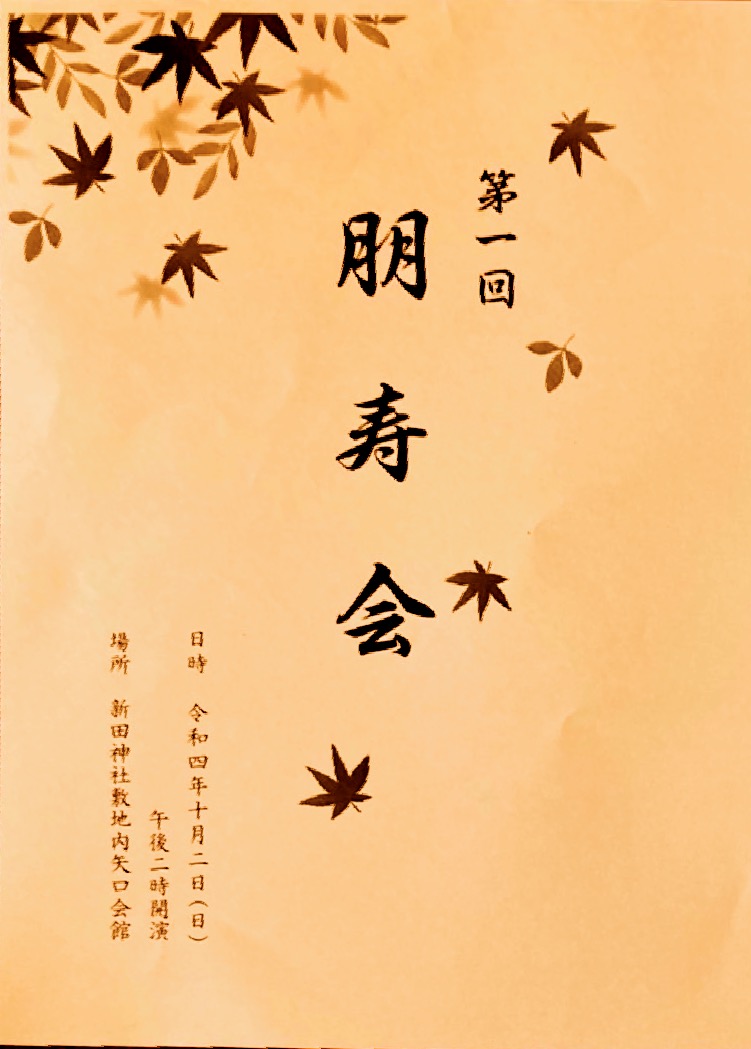 第一回
朋寿会
日時 令和四年十月二日（日）
午後二時開演
場所 新田神社敷地内矢口会館